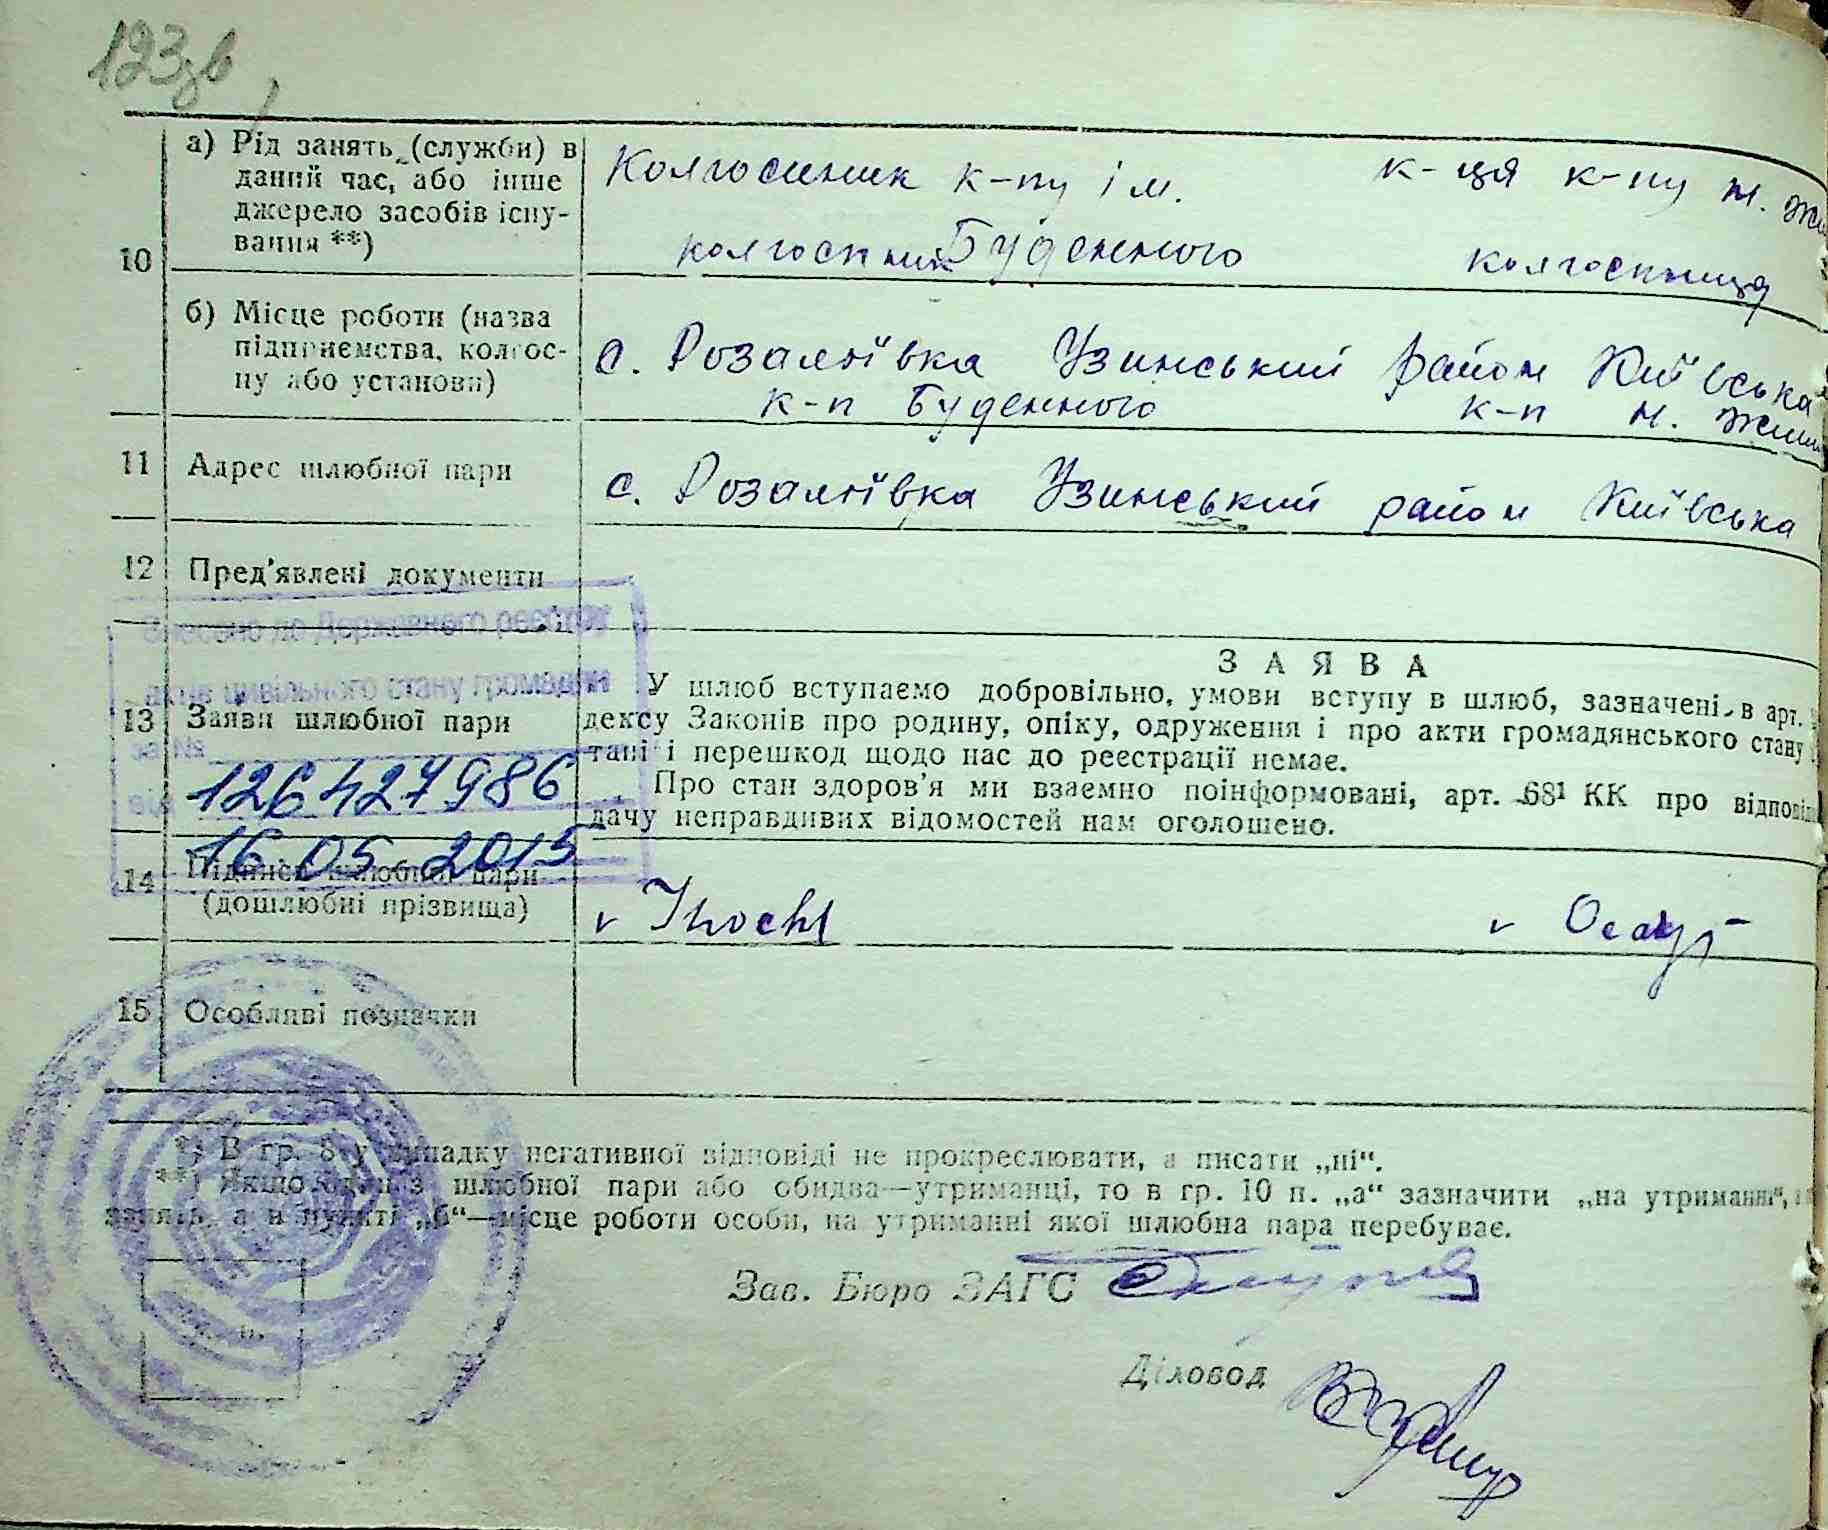 123зв
а) Рід занять (служби) в
даний час, або інше
джерело засобів існу-
вання **)
10
Колгоспник к-пу ім.
Буденного
колгоспник
к-ця к-пу н.
колгоспниця
б) Місце роботи (назва
підприємства, колгос-
пу або установи)
с. Розаліївка Узинський район Київська
к-п Буденного к-п н.
11 Адрес шлюбної пари
с. Розаліївка Узинський район Київська
12 Пред'явлені документи
Внесено до Державного реєстру
актів цивільного стану громадян
13 Заяви шлюбної пари
за №
126427986
від
16 05 2015
ЗАЯВА
У шлюб вступаємо добровільно, умови вступу в шлюб, зазначені в арт.
дексу Законів про родину, опіку, одруження і про акти громадянського стану
тані і перешкод щодо нас до реестрації немає.
Про стан здоров'я ми взаємно поінформовані, арт. 68¹ КК про відпові
дачу неправдивих відомостей нам оголошено.
14 Підписи шлюбної пари
(дошлюбні прізвища)
15 Особливі позначки
*) В гр. 8 у випадку негативної відповіді не прокреслювати, а писати „ні“.
**) Якщо один з шлюбної пари або обидва—утриманці, то в гр. 10 п. „а“ зазначити „на утриманні“,
занять, а в пункті „б“—місце роботи особи, на утриманні якої шлюбна пара перебуває.
Зав. Бюро ЗАГС
Діловод